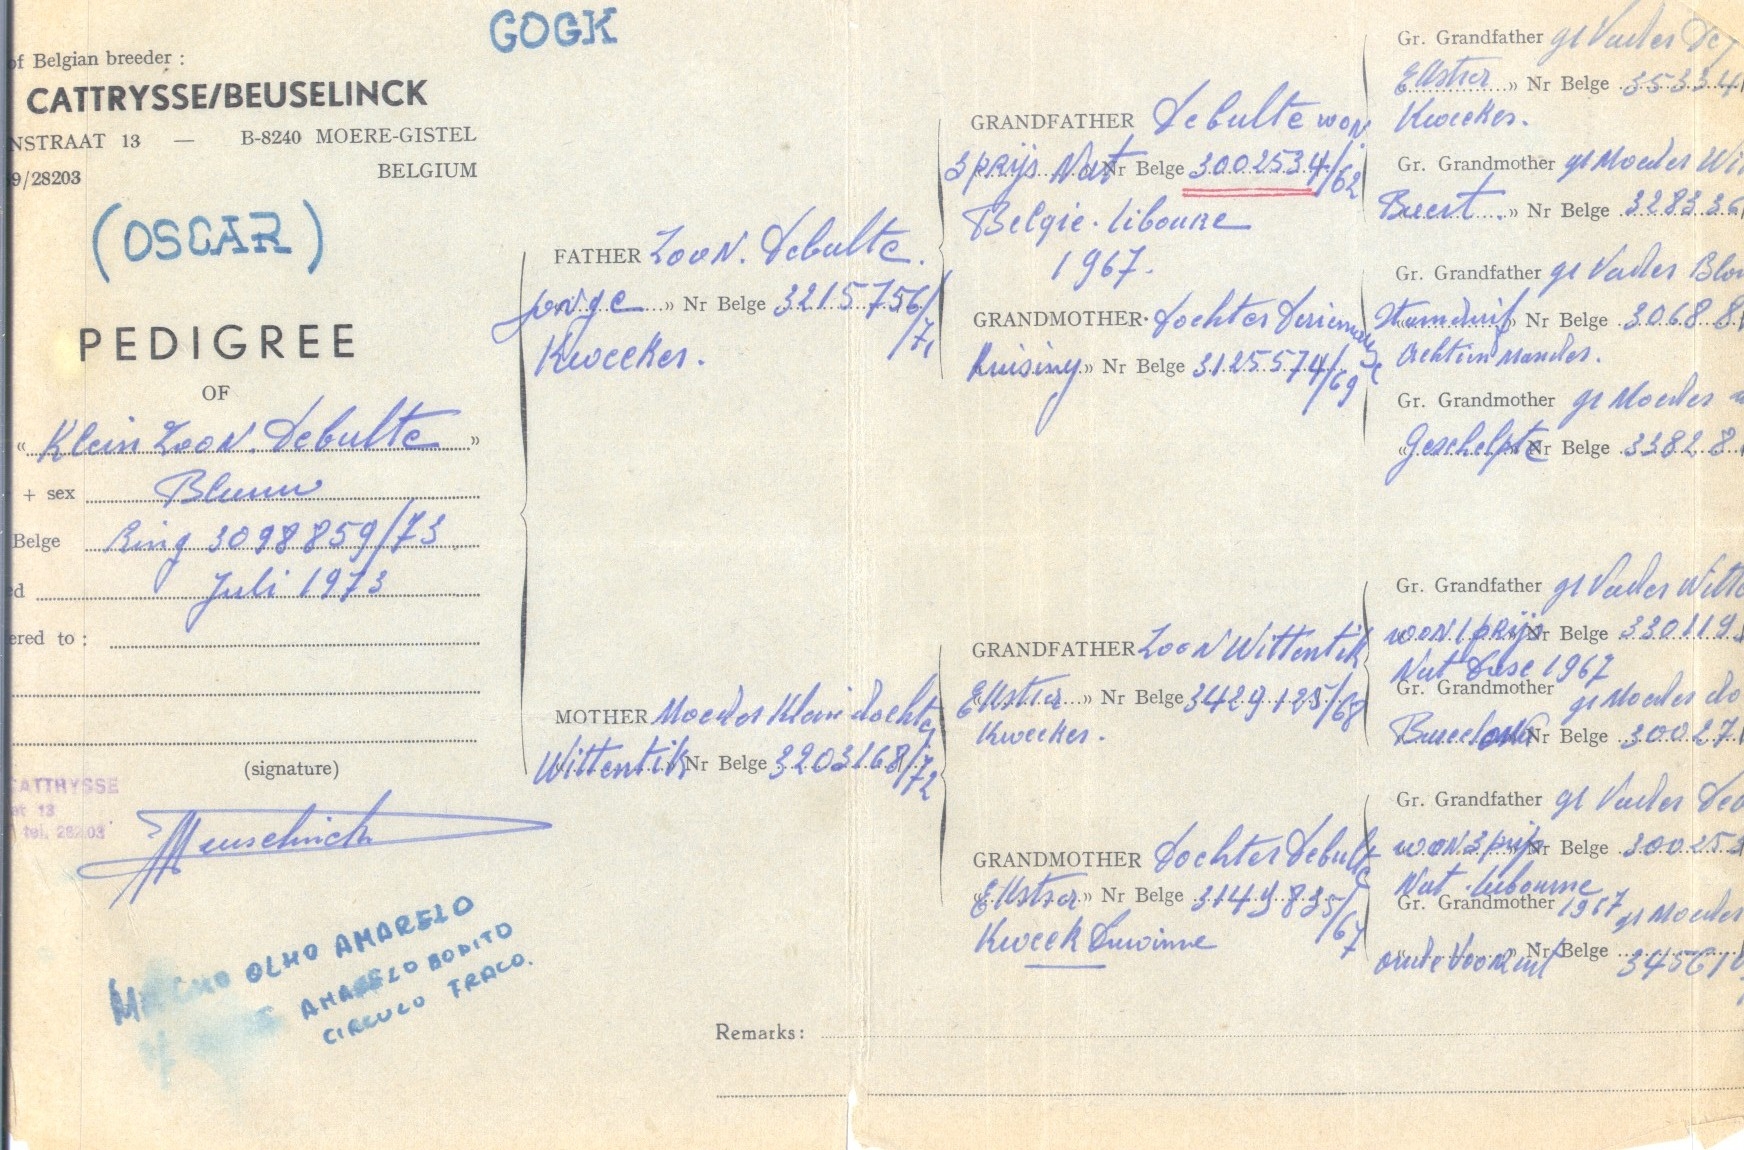 GOGK
of Belgian breeder :
CATTRYSSE/BEUSELINCK
NSTRAAT 13 — B-8240 MOERE-GISTEL
BELGIUM
9/28203
(OSCAR)
PEDIGREE
OF
« Klein Zoon. Debulte »
+ sex Blauw
Belge Ring 3098859/73
ed Juli 1973
ered to :
(signature)
CATTRYSSE
at 13
tel. 28203
Beuselinck
MACHO OLHO AMARELO
AMARELO BONITO
CIRCULO FRACO.
FATHER Zoon. Debulte.
jonge » Nr Belge 3215756/71
Kweeker.
MOTHER Moeder Klein dochter
Wittentik Nr Belge 3203168/72
GRANDFATHER Debulte won
3 prijs Nat Nr Belge 3002534/62
Belgie. Libourne
1967.
GRANDMOTHER. Dochter
Kruising » Nr Belge 3125574/69
GRANDFATHER Zoon Wittentik
» Nr Belge 3429125/68
Kweeker.
GRANDMOTHER Dochter Debulte
» Nr Belge 3149835/67
Kweek Duivinne
Gr. Grandfather gr Vader De
» Nr Belge 35334
Kweeker.
Gr. Grandmother gr Moeder Wi
» Nr Belge 328336
Gr. Grandfather gr Vader Blou
Stamduif Nr Belge 30688
Gr. Grandmother gr Moeder
« Geschelpte Nr Belge 33828
Gr. Grandfather gr Vader Witte
won 1 prijs Nr Belge 330119
Nat 1967
Gr. Grandmother gr Moeder do
Barcelona Nr Belge 30027
Gr. Grandfather gr Vader Deb
won 3 prijs Nr Belge 300253
Nat. Libourne
Gr. Grandmother 1967 gr Moeder
Nr Belge 34561
Remarks: